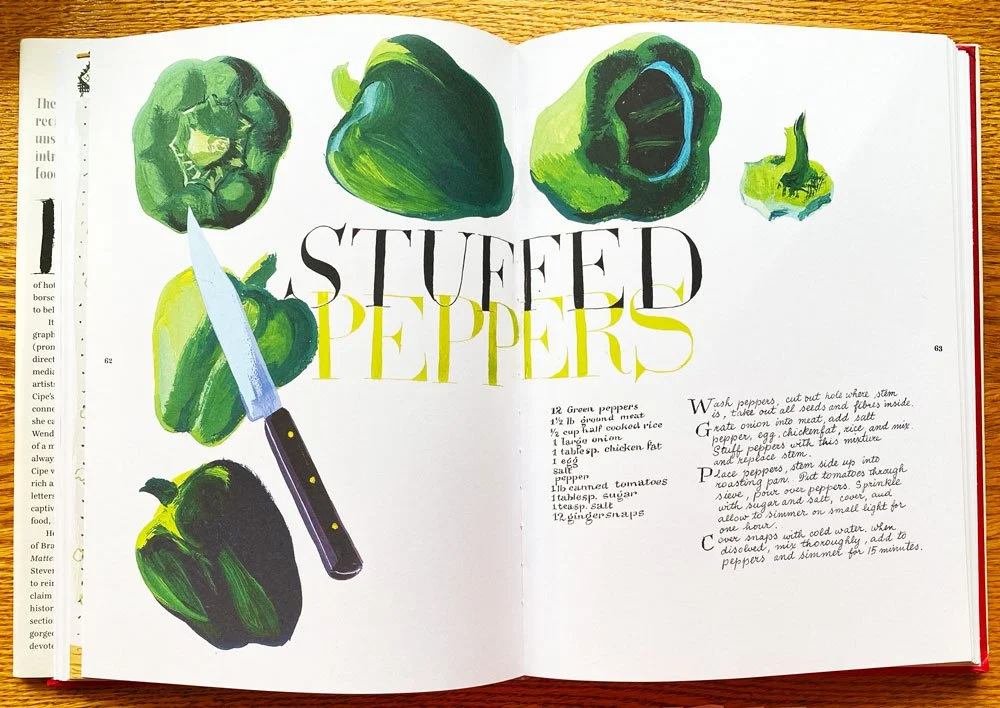 The
rec
uns
intr
foo
I
of hot
borsc
to bel
It
graph
(pron
direct
media
artist
Cipe's
conne
she ca
Wend
of a m
always
Cipe v
rich a
letters
captiv
food,
He
of Bra
Matte
Steven
to rein
claim
histor
sectio
gorge
devote
62
STUFFED
PEPPERS
63
12 Green peppers
1½ lb ground meat
½ cup half cooked rice
1 large onion
1 tablesp. chicken fat
1 egg
salt
pepper
1 lb canned tomatoes
1 tablesp. sugar
1 teasp. salt
12 gingersnaps
Wash peppers, cut out hole where stem
is, take out all seeds and fibres inside.
Grate onion into meat, add salt
pepper, egg, chickenfat, rice, and mix.
Stuff peppers with this mixture
and replace stem.
Place peppers, stem side up into
roasting pan. Put tomatoes through
sieve, pour over peppers. Sprinkle
with sugar and salt, cover, and
allow to simmer on small light for
one hour.
Cover snaps with cold water. when
disolved, mix thoroughly, add to
peppers and simmer for 15 minutes.